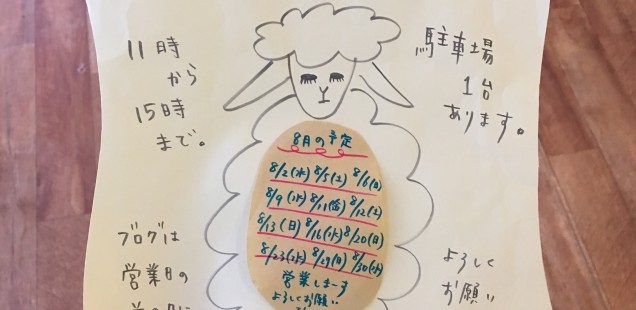 11時
から
15時
まで。
駐車場
1台
あります。
8月の予定
8/2(水) 8/5(土) 8/6(日)
8/9(水) 8/11(金) 8/12(土)
8/13(日) 8/16(水) 8/20(日)
8/23(水) 8/30(水)
営業しまーす
よろしくお願い
ブログは
営業日の
よろしく
お願い